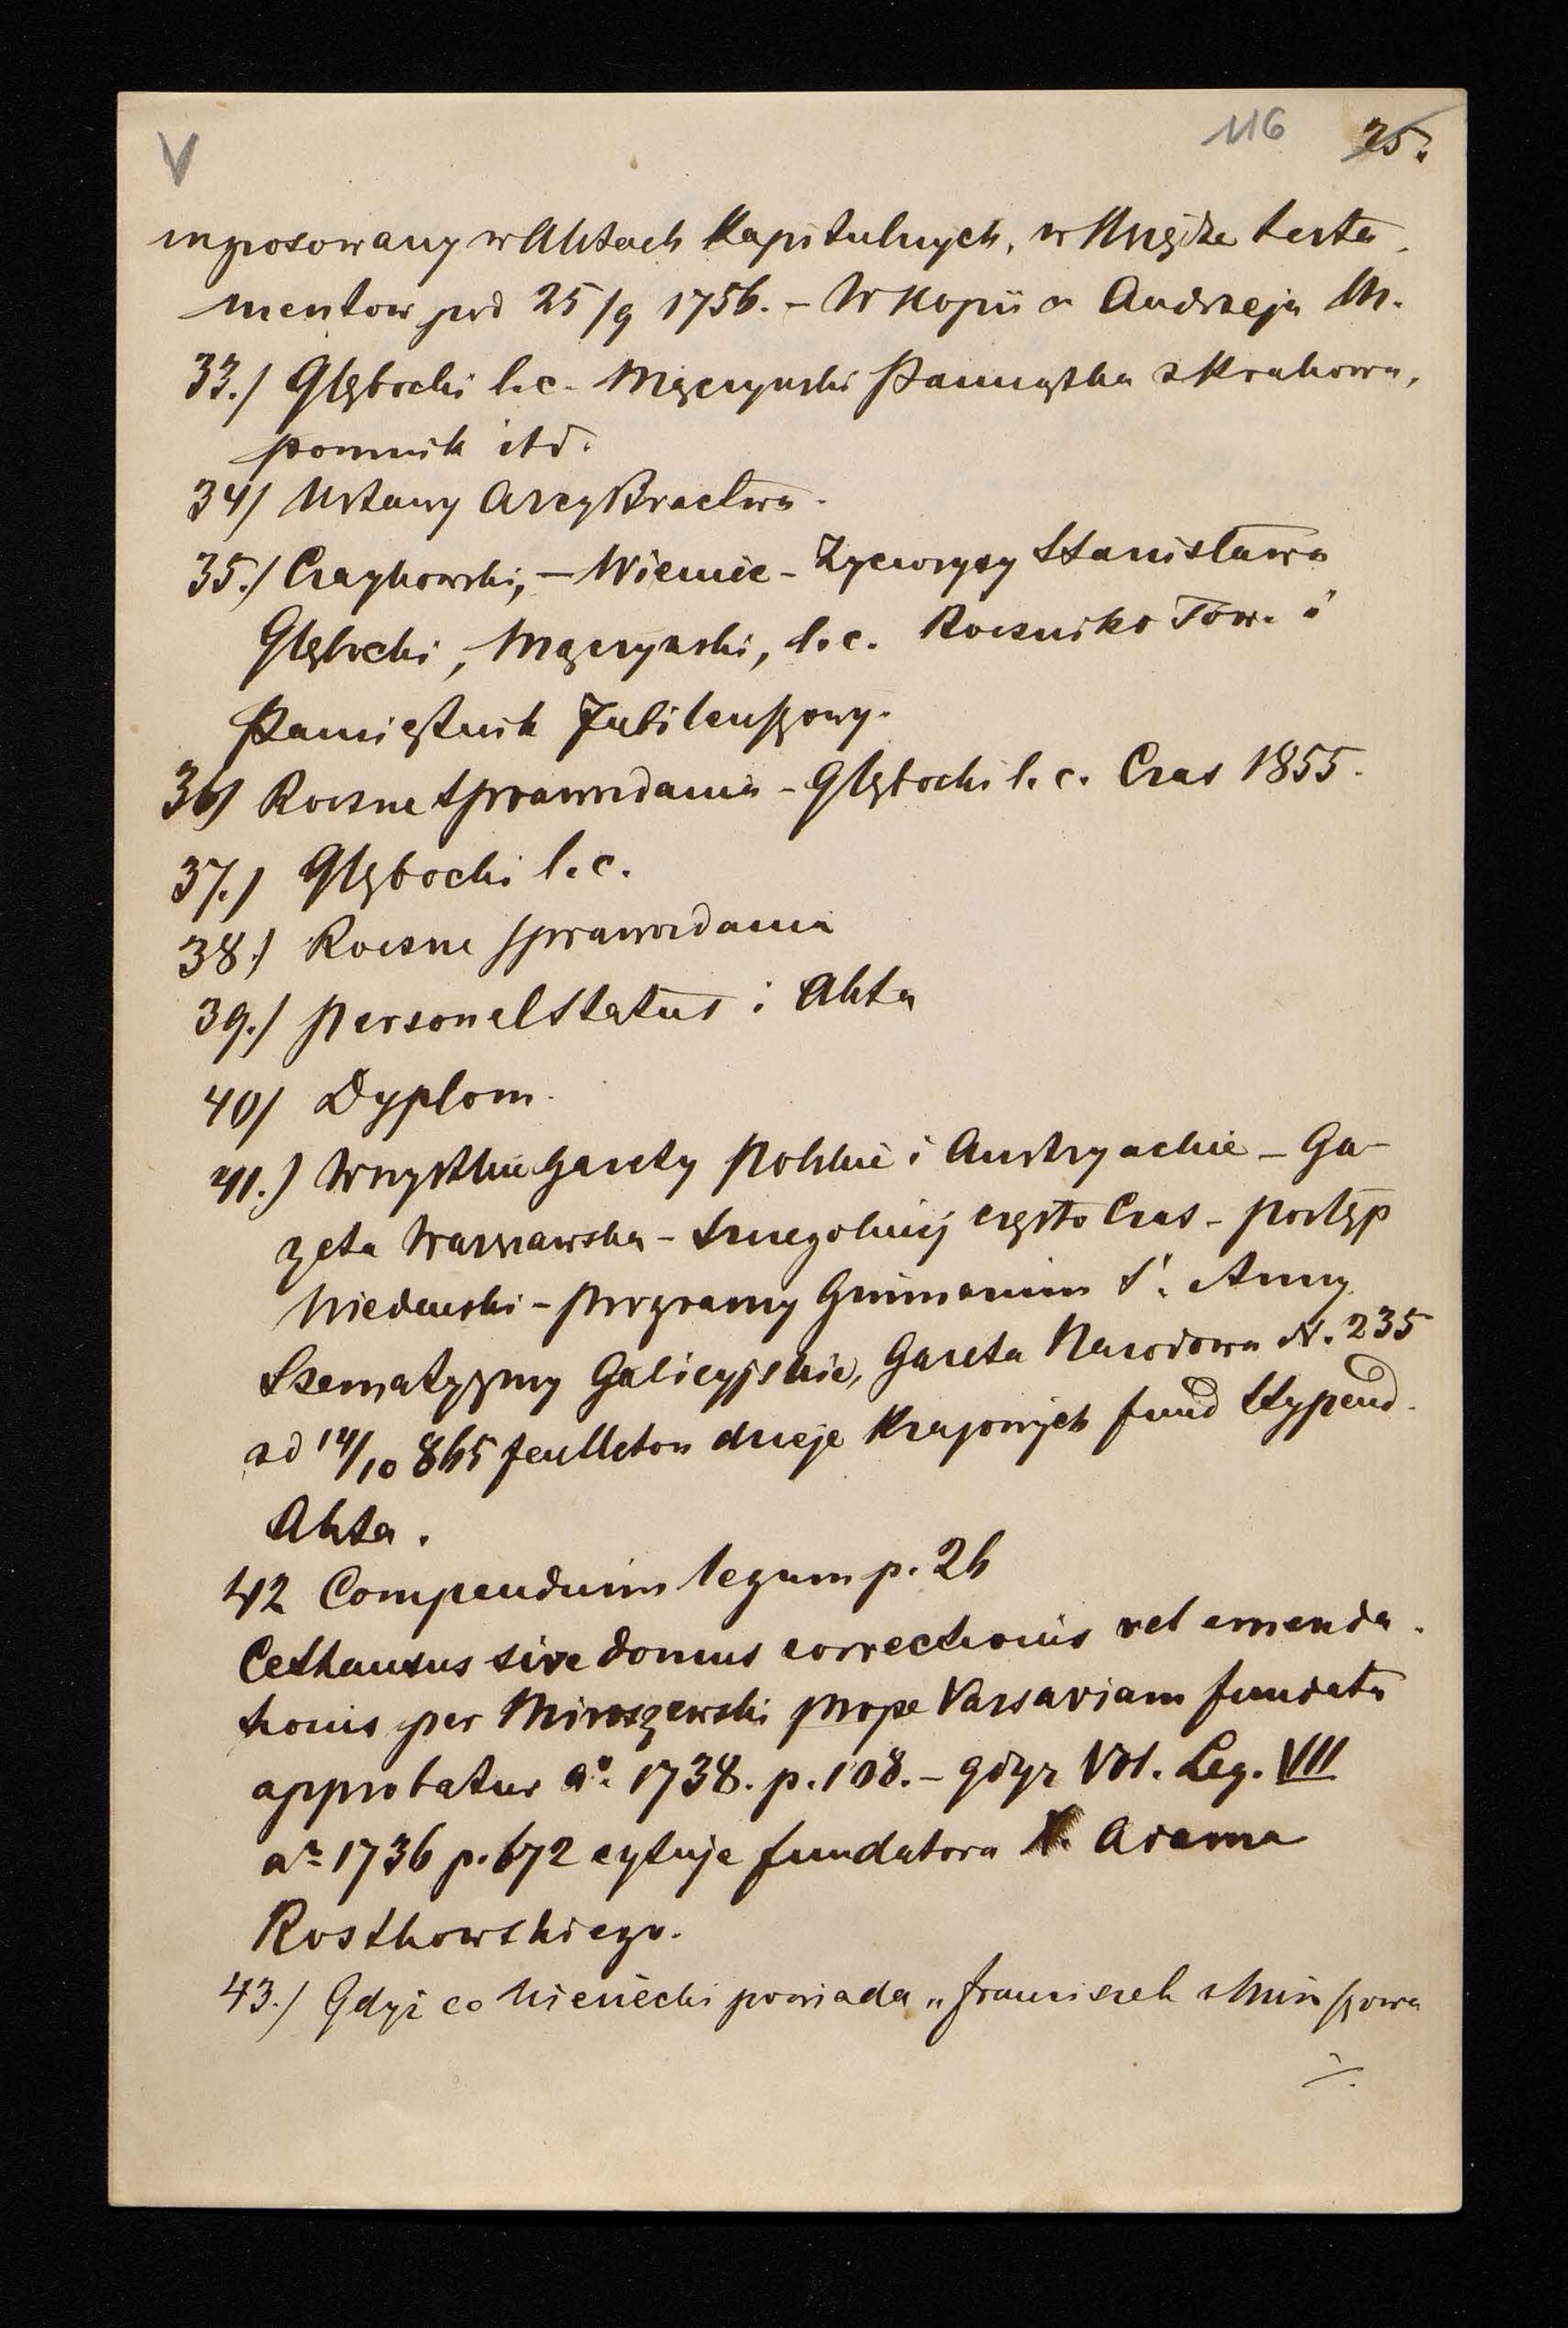 V 116 25.
ingrosowany w Aktach Kapitulnych, w Księdze testa-
mentow pod 25/9 1756. – W Kopii u Andrzeja M.
33./ Głębocki l.c. Mączyński Pamiątka z Krakowa,
pomnik itd.
34/ Ustawy ArcyBractwa.
35./ Czaykowski, – Wiemie – Życiorysy Stanisława
Głębocki, Mączyński, l.c. Roczniko Tow. i
Pamiętnik Jubileuszowy.
36/ Roczne Sprawozdania – Głębocki l.c. Czas 1855.
37./ Głębocki l.c.
38./ Roczne sprawozdania
39./ Personelstatus i Akta
40/ Dyplom.
41.) Wszystkie gazety Polskie i Austryackie – Ga-
zeta Warszawska – Szczegolniej często Czas – Postęp
Wiedeński – programy Gimnazium S. Anny
Szematyzmy Galicyjskie, Gazeta Narodowa N. 235
ad 14/10 865 feulleton dzieje Krajowych fund Stypend.
Akta.
42 Compendium legum p. 26
Cethausus sive domus correctionis vel emenda-
tionis per Miroszewski prope Varsaviam fundata
approbatur aº. 1738. p. 108. – gdyz Vol. Leg. VII
aº 1736 p. 672 cytuje fundatora X. Adama
Rostkowskiego.
43./ Gdyż co Niesiecki powiada „Franciszek z Miroszowa
./.